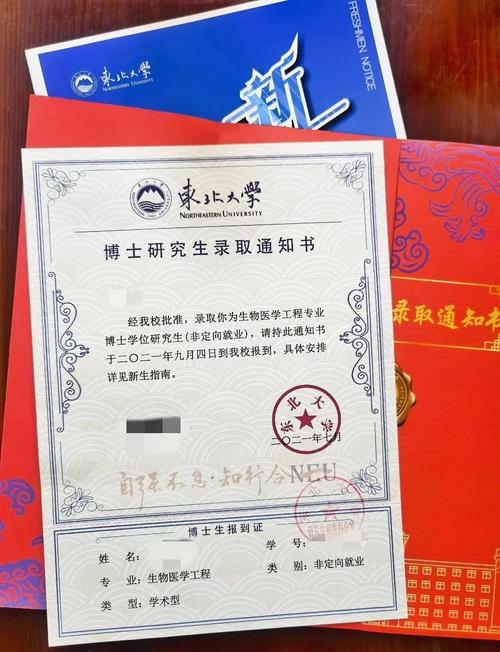 FRESHMEN NOTICE
東北大学
NORTHEASTERN UNIVERSITY
新
東北大学
NORTHEASTERN UNIVERSITY
博士研究生录取通知书
经我校批准，录取你为生物医学工程专业
博士学位研究生(非定向就业)，请持此通知书
于二〇二一年九月四日到我校报到，具体安排
详见新生指南。
东北大学
二〇二一年七月
自强不息·知行合一
NEU
录取通知书
博士生报到证
姓 名:
学 号:
专 业: 生物医学工程
类 别: 非定向就业
类 型: 学术型